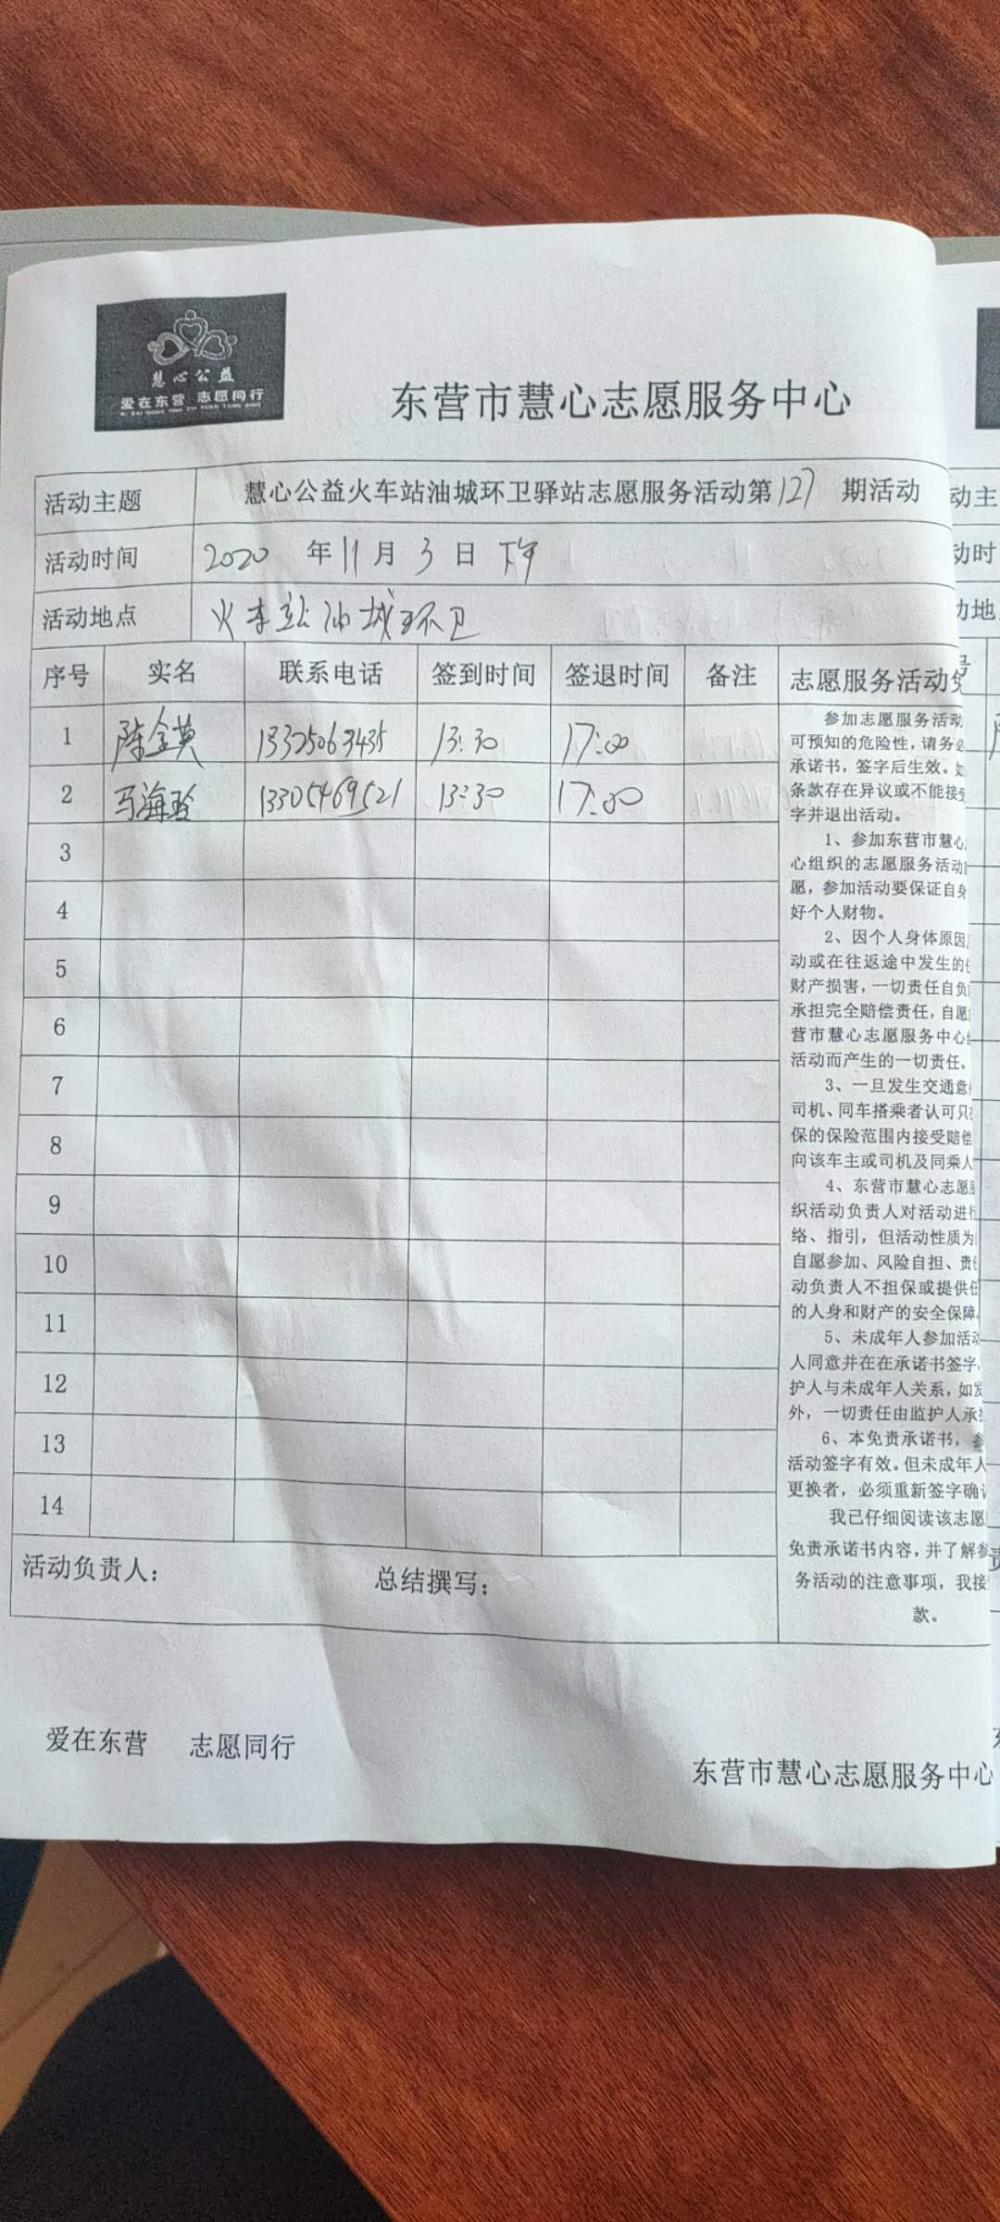 慧心公益
爱在东营 志愿同行
AI ZAI DONG YING ZHI YUAN TONG XING
东营市慧心志愿服务中心
活动主题 慧心公益火车站油城环卫驿站志愿服务活动第127期活动
活动时间 2020年11月3日 下午
活动地点 火车站油城环卫
序号 实名 联系电话 签到时间 签退时间 备注
1 陈金英 13325063435 13:30 17:00
2 马海玲 13305469521 13:30 17:00
3
4
5
6
7
8
9
10
11
12
13
14
活动负责人： 总结撰写：
志愿服务活动
参加志愿服务活动
可预知的危险性，请务
承诺书，签字后生效。如
条款存在异议或不能接
字并退出活动。
1、参加东营市慧心
心组织的志愿服务活动
愿，参加活动要保证自身
好个人财物。
2、因个人身体原因
动或在往返途中发生的
财产损害，一切责任自负
承担完全赔偿责任，自愿
营市慧心志愿服务中心
活动而产生的一切责任。
3、一旦发生交通意
司机、同车搭乘者认可只
保的保险范围内接受赔偿
向该车主或司机及同乘人
4、东营市慧心志愿
织活动负责人对活动进行
络、指引，但活动性质为
自愿参加、风险自担、责
动负责人不担保或提供任
的人身和财产的安全保障
5、未成年人参加活动
人同意并在在承诺书签字，
护人与未成年人关系，如发
外，一切责任由监护人承
6、本免责承诺书，
活动签字有效。但未成年人
更换者，必须重新签字确
我已仔细阅读该志愿
免责承诺书内容，并了解参
务活动的注意事项，我接
款。
爱在东营 志愿同行
东营市慧心志愿服务中心
动主
动时
地